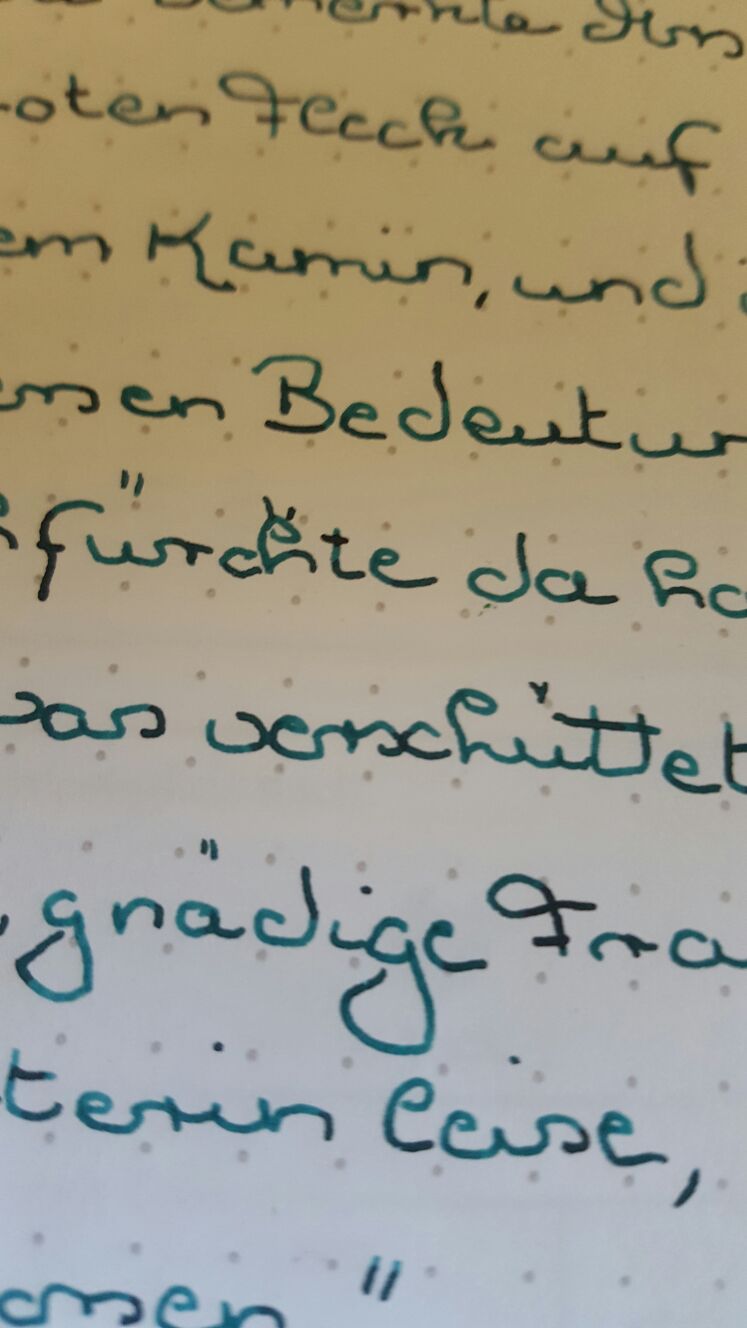 bemerkte den
oten Fleck auf
em Kamin, und
ssen Bedeutun
fürchte da ha
was verschüttet
, gnädige Fra
terin leise,
ossen "